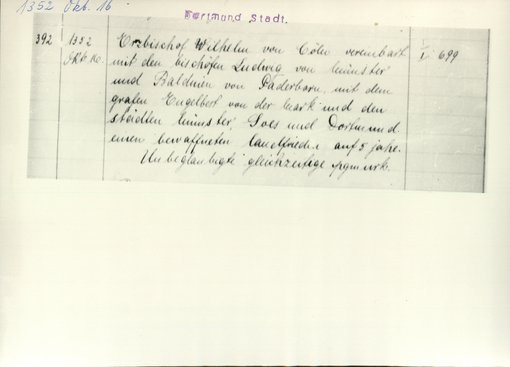 1352 Okt. 16
Dortmund Stadt.
392 1352 Erzbischof Wilhelm von Cöln vereinbart I/1 699
Okt. 10. mit den bischöfen Ludwig von Münster
und Balduin von Paderborn, mit dem
grafen Engelbert von der Mark und den
städten Münster, Soest und Dortmund
einen bewaffneten landfrieden auf 5 jahre.
Unbeglaubigte gleichzeitige pgmurk.